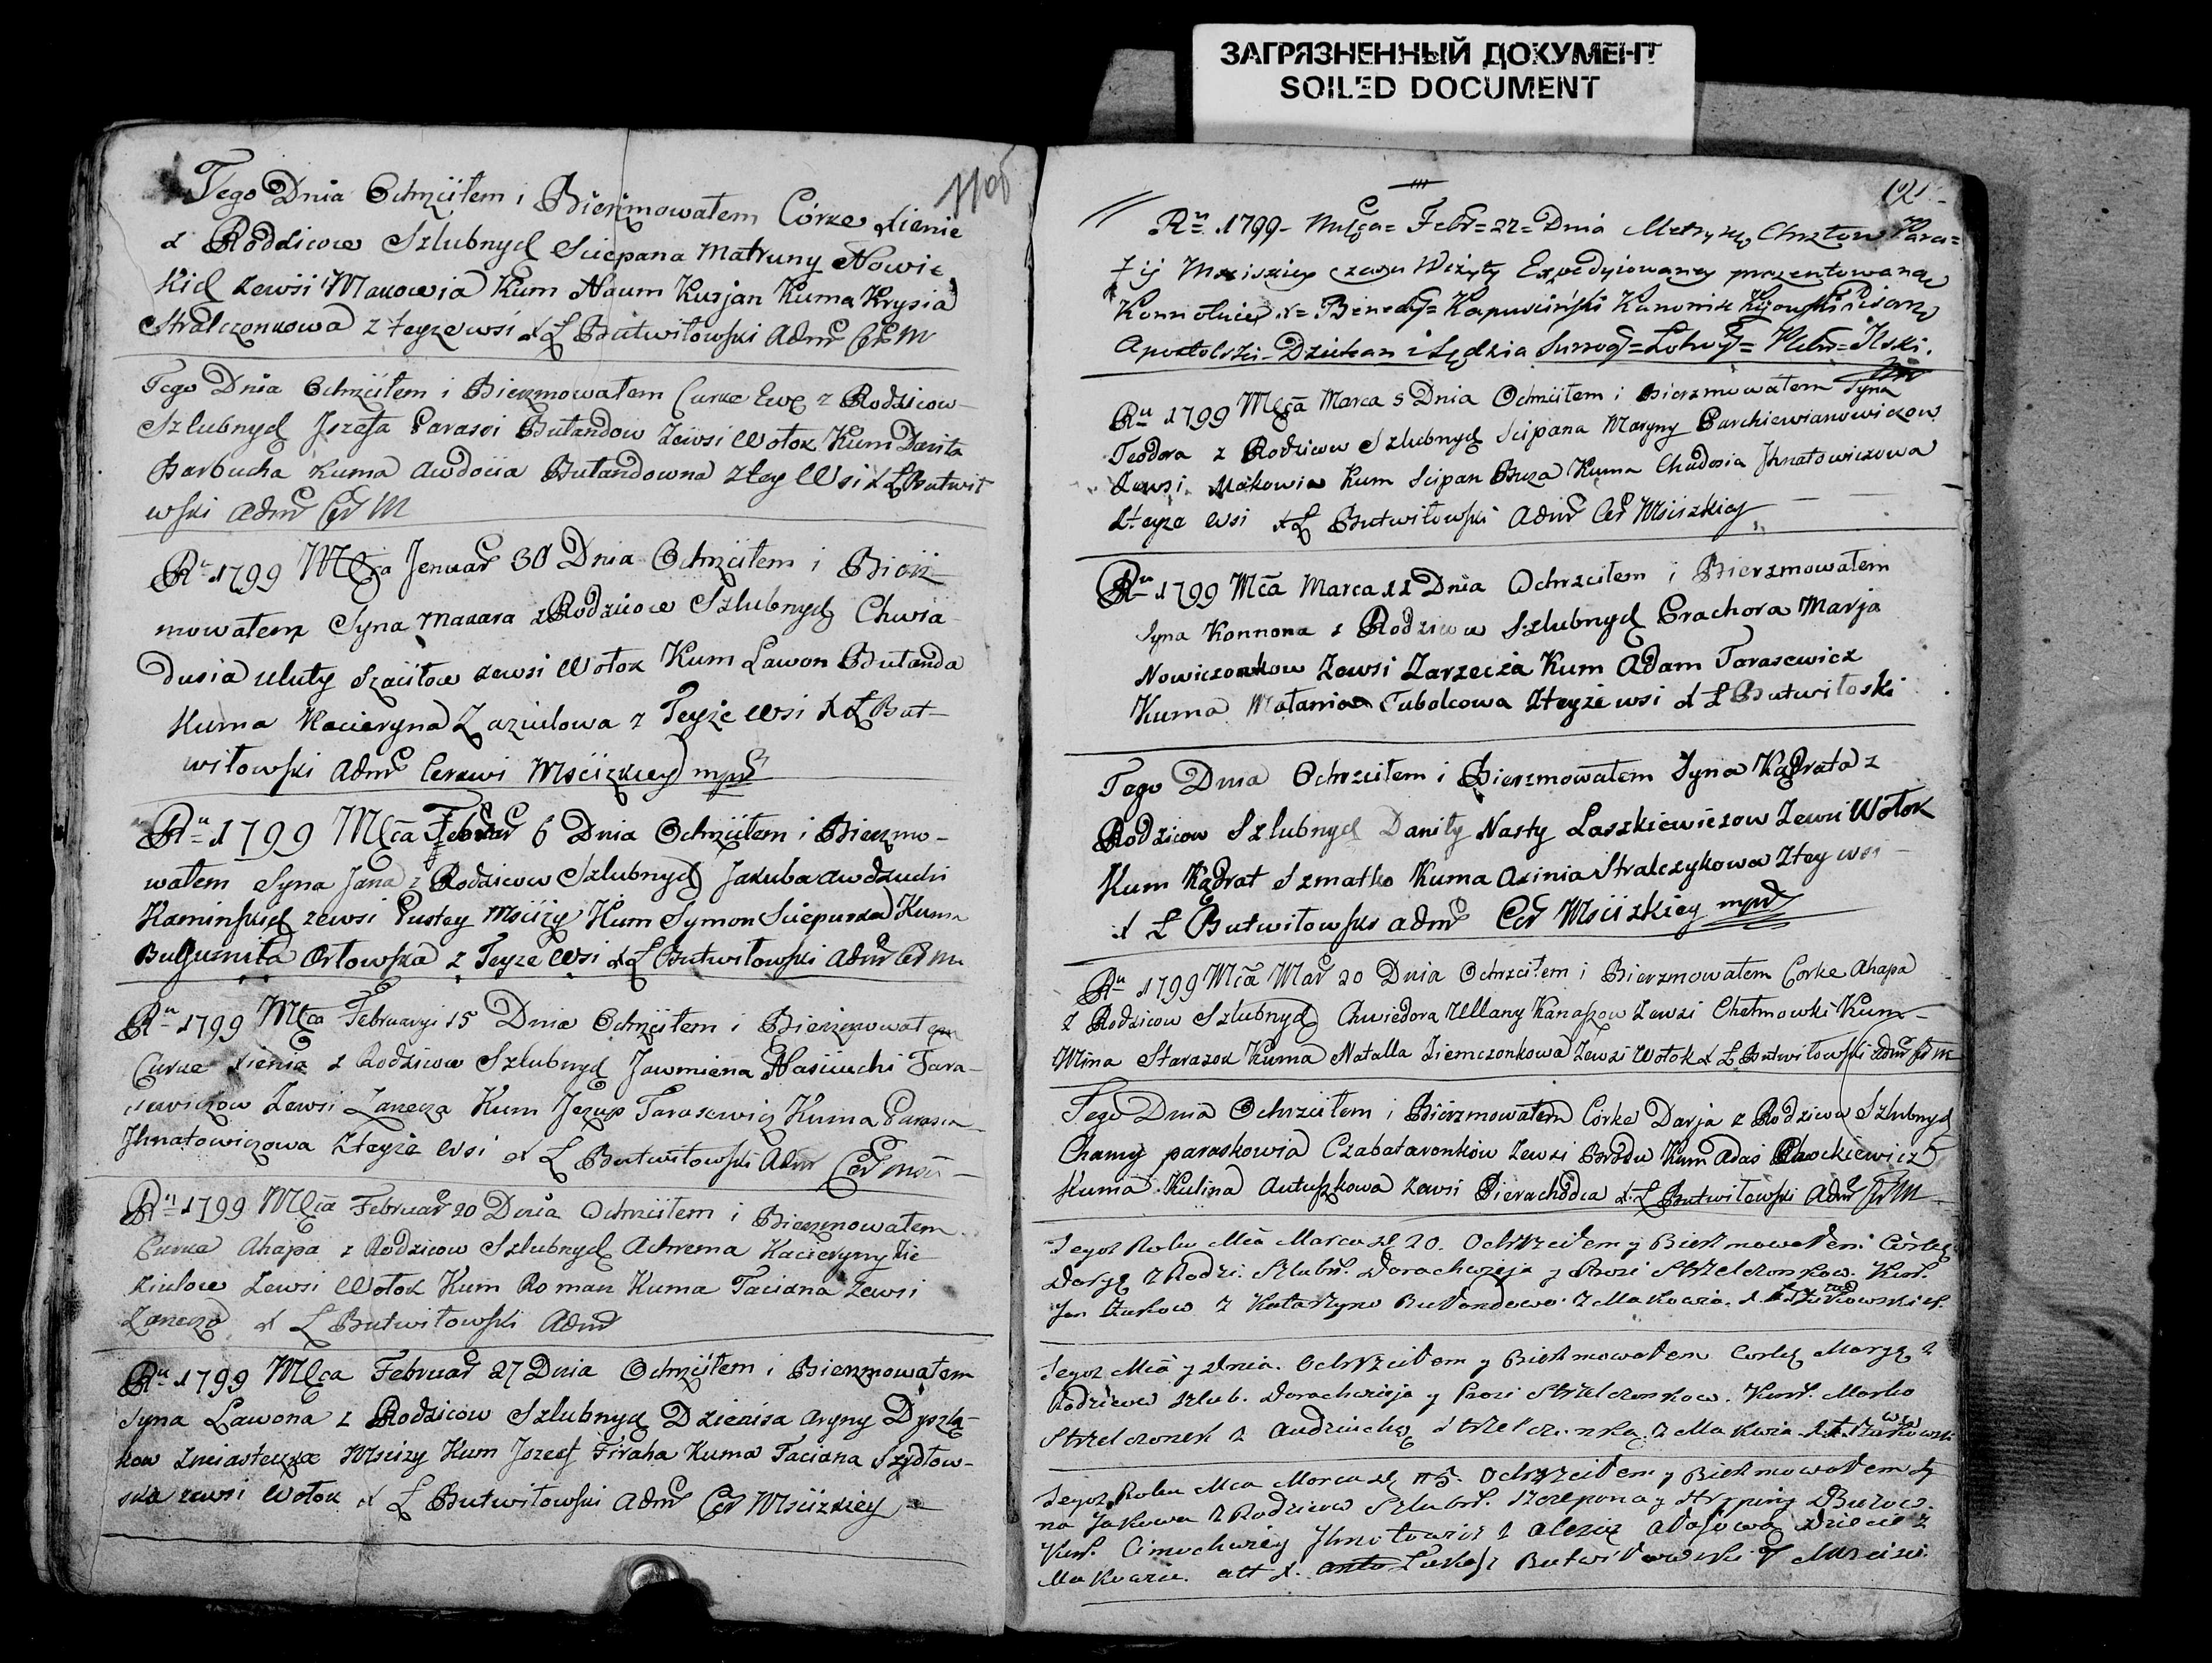 ЗАГРЯЗНЕННЫЙ ДОКУМЕНТ
SOILED DOCUMENT
Tego Dnia Ochrzciłem i Bierzmowałem Córke Xienie
z Rodzicow Szlubnych Sciepana Matruny Nowic
kich zewsi Makowia Kum Naum Kurjan Kuma Krysia
Stralczonkowa z teyze wsi X Ł Butwiłowski Adm Cer M
Tego Dnia Ochrzciłem i Bierzmowałem Curke Ewe z Rodzicow
Szlubnych Jozefa Parasei Butandow zewsi Wołok Kum Daniła
Barbucha Kuma Awdocia Butandowna ztey Wsi X Ł Butwił
wski Adm Cer M
Ru 1799 Mca Januar 30 Dnia Ochrzciłem i Bierz
mowałem Syna Makara z Rodzicow Szlubnych Chwia
dusia Uluty zewsi Wołok Kum Lawon Butanda
Kuma Kacieryna Zaziulowa z Teyże Wsi X Ł But-
wiłowski Adm Cerkwi Mscizkiey mpr
Ru 1799 Mca Februar 6 Dnia Ochrzciłem i Bierzmo-
wałem Syna Jana z Rodzicow Szlubnych Jakuba Awdziuchi
Kaminskich zewsi Pustey Msciży Kum Symon Sciepurka Kuma
Orłowska z Teyze Wsi X Ł Butwiłowski Adm Cer M
Ru 1799 Mca Februaryi 15 Dnia Ochrzciłem i Bierzmowałem
Curke Xienie z Rodzicow Szlubnych Jawmiena Nasciuchi Tara-
sewiczow Zewsi Zarecza Kum Jezup Tarasewicz Kuma Parasia
Jhnatowiczowa Zteyże Wsi X Ł Butwiłowski Adm Cer Msci
Ru 1799 Mca Februar 20 Dnia Ochrzciłem i Bierzmowałem
Curke Ahapa z Rodzicow Szlubnych Achrema Kacieryny Zie
ziulow Zewsi Wołok Kum Roman Kuma Taciana Zewsi
Zarecza X Ł Butwiłowski Adm
Ru 1799 Mca Februar 27 Dnia Ochrzciłem i Bierzmowałem
Syna Lawona z Rodzicow Szlubnych Dzienisa Aryny Dyszle-
kow Zmiasteczka Msciży Kum Jozef Firaha Kuma Taciana Szydłow-
ska zewsi Wołok X Ł Butwiłowski Adm Cer Mscizkiey
Ru 1799 Msca Febr 22 Dnia Metrykę Chrztow Para=
fij Mscizkiey czasu Wizyty Expedyiowaney prezentowaną
X Bened Kapusciński Kanonik Kijowski Pisarz
Apostolski Dziekan i Sędzia Surrog
Ru 1799 Mca Marca 5 Dnia Ochrzciłem i Bierzmowałem Syna
Teodora z Rodzicow Szlubnych Scipana Maryny Parchiewianowiczow
Zewsi Makowia Kum Scipan Buza Kuma Chadosia Jhnatowiczowa
Zteyze Wsi X Ł Butwiłowski Adm Cer Mscizkiey
Ru 1799 Mca Marca 11 Dnia Ochrzciłem i Bierzmowałem
Syna Konnona z Rodzicow Szlubnych Prachora Marja
Nowiczonkow Zewsi Zarzecza Kum Adam Tarasewicz
Kuma Matania Cubolcowa Zteyże wsi X Ł Butwiłoski
Tego Dnia Ochrzciłem i Bierzmowałem Syna Kądrata z
Rodzicow Szlubnych Daniły Nasty Laszkiewiczow Zewsi Wołok
Kum Kądrat Szmatko Kuma Axinia Stralczykowa Ztey wsi
X Ł Butwiłowski Adm Cer Mscizkiey mpr
Ru 1799 Mca Mar 20 Dnia Ochrzciłem i Bierzmowałem Corke Ahapa
z Rodzicow Szlubnych Chwiedora Ullany Kanaszow Zewsi Chełmowki Kum
Mina Starazok Kuma Natalla Ziemczonkowa Zewsi Wołok X Ł Butwiłowski Adm Cer M
Tego Dnia Ochrzciłem i Bierzmowałem Córke Darja z Rodzicow Szlubnych
Chamy paraskowia Czabataronków Zewsi Brodu Kum Adas
Kuma Kulina Autuszkowa zewsi Pierachodca X Ł Butwiłowski Adm Cer M
Tegoż Roku Mca Marca d 20. Ochrzciłem y Bierzmowałem Córkę
Daryę z Rodzi. Szlubn. Darachwieja y Prosi Strzelczonkow. Kum.
Jan Żukow z Katarzyną Butandową z Makowia. X
Tegoż Mca y dnia. Ochrzciłem y Bierzmowałem Corkę Maryę z
Rodzicow Szlub. Darachwieja y Prosi Strzelczonkow. Kum. Marko
Strzelczonek z Audziuchą Strzelczonką z Makowia
Tegoż Roku Mca Marca d Ochrzciłem y Bierzmowałem Sy
na Jakowa z Rodzicow Szlubn. Szczepana y Ahrypiny Buzow.
Kum. Cimochwiey Jhnatowicz z
Makowia. X. Łukasz Butwiłowski